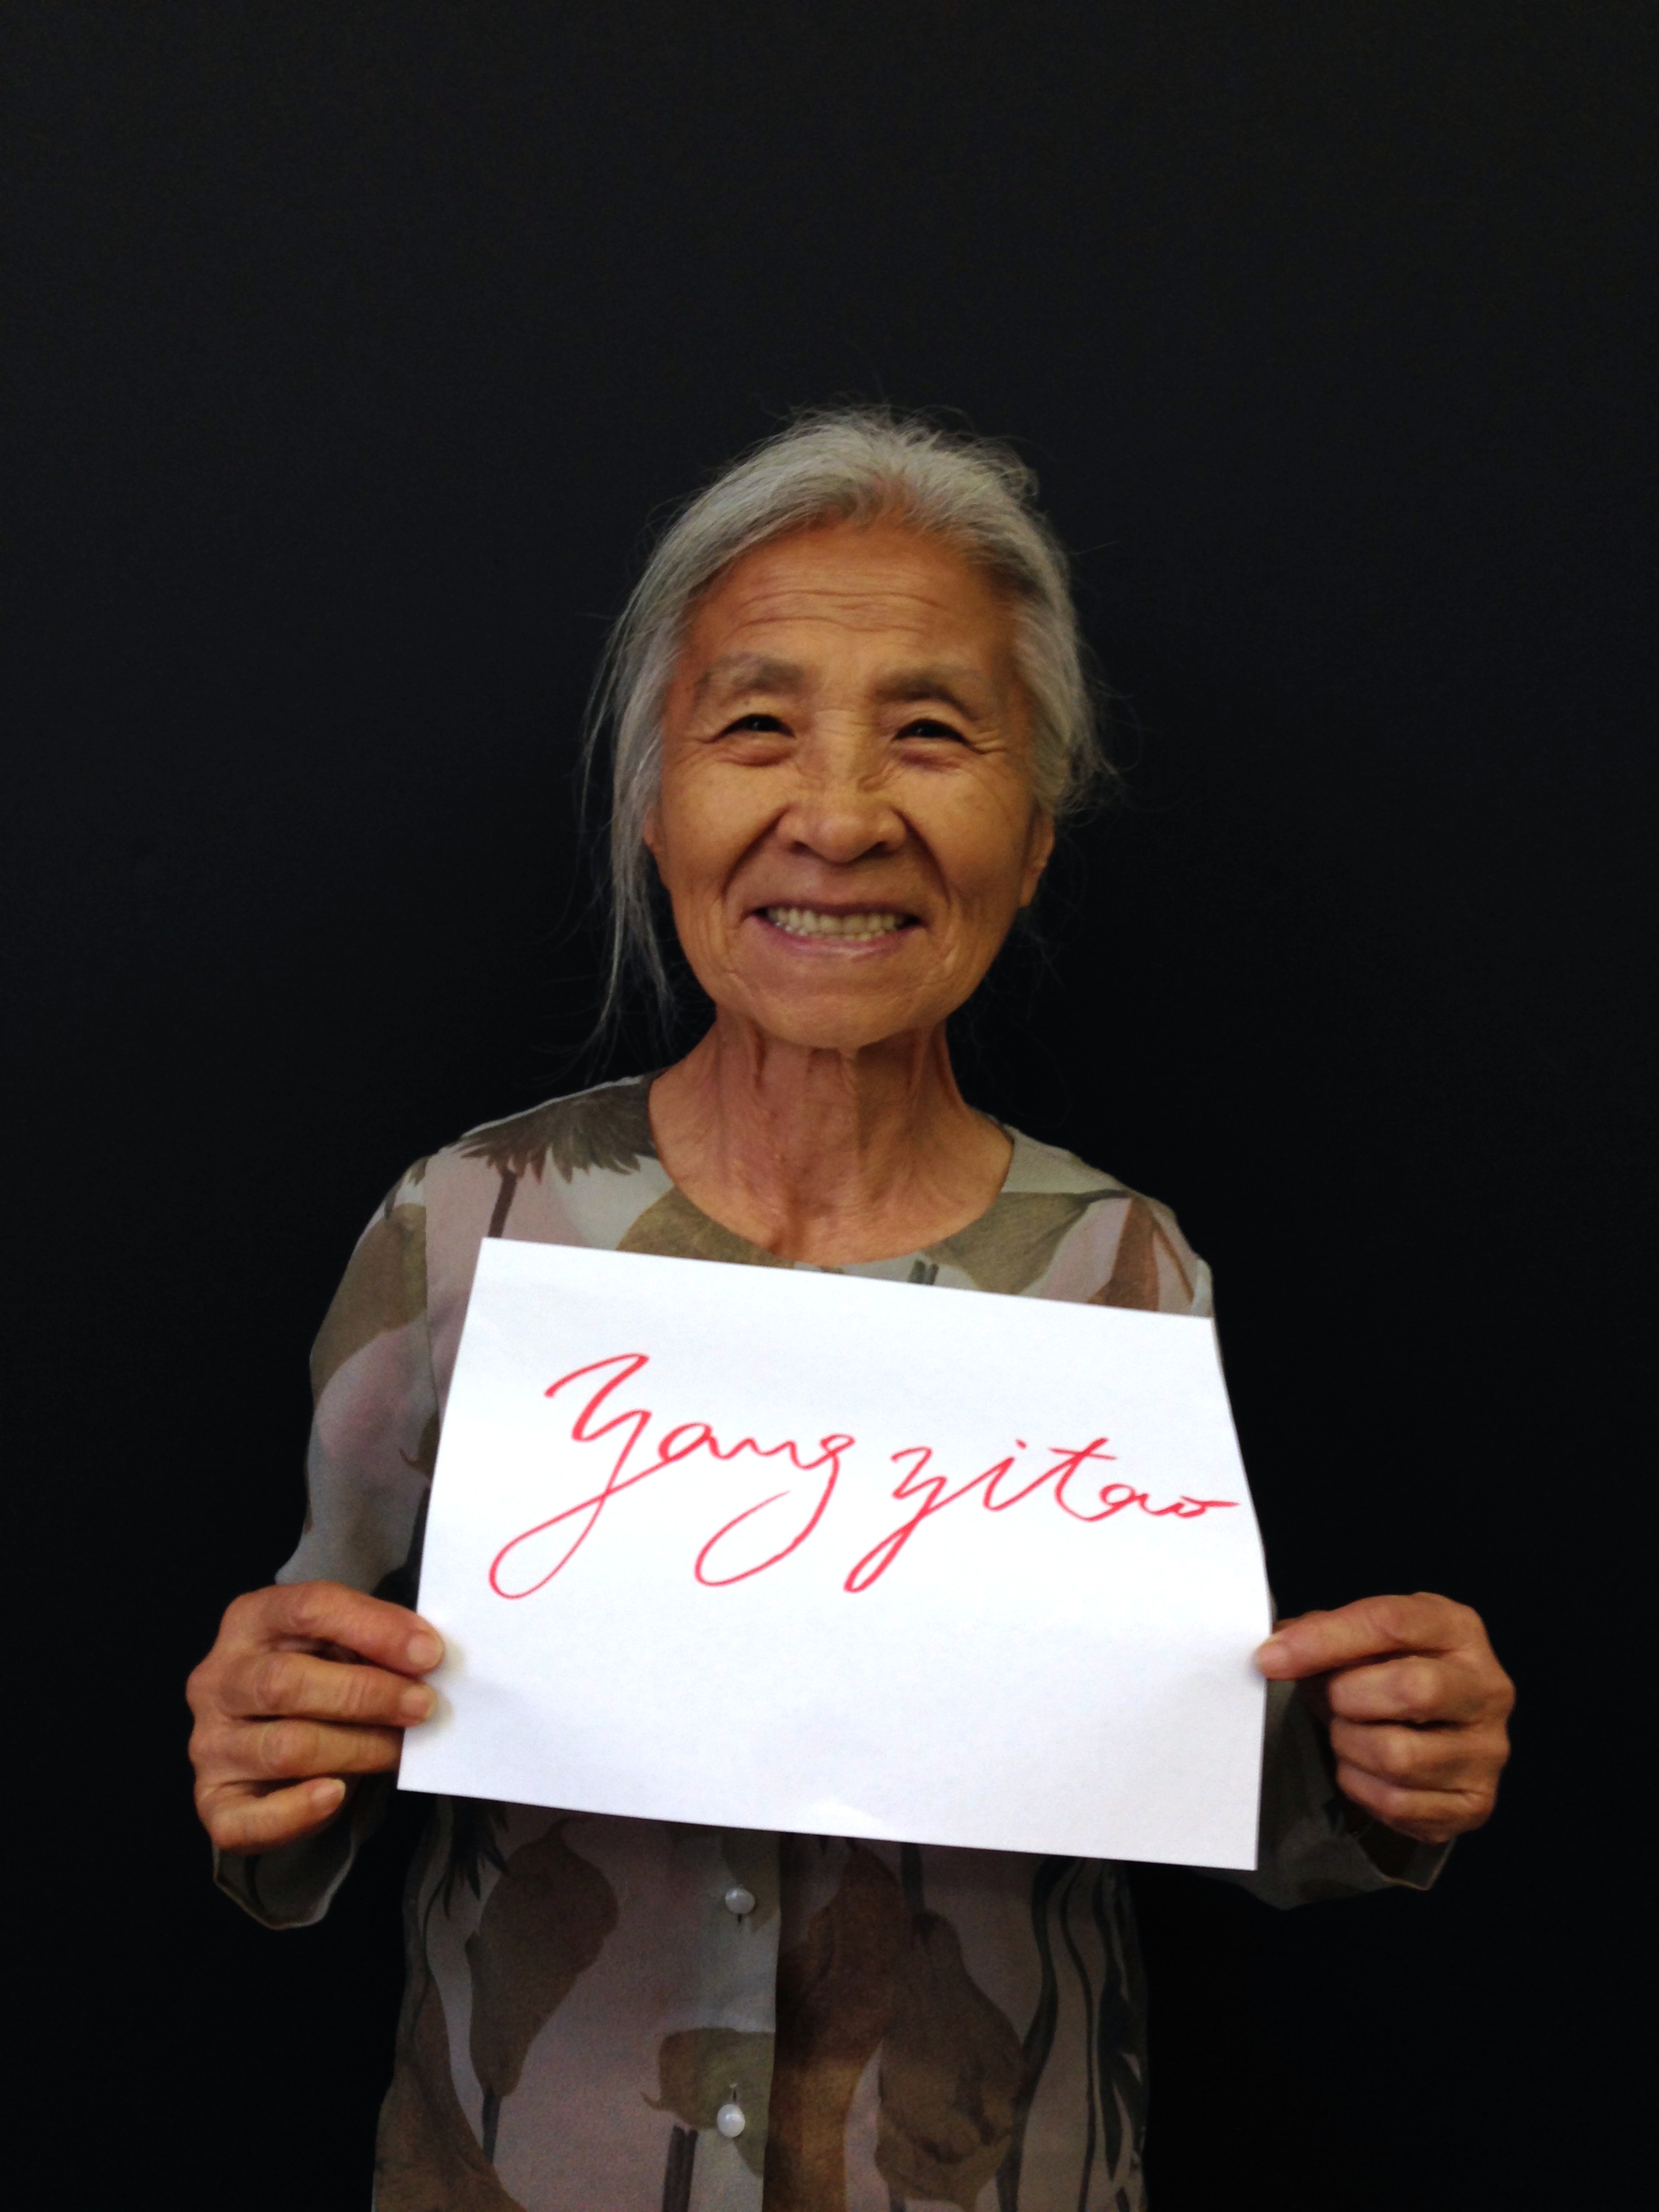 Yang yitao